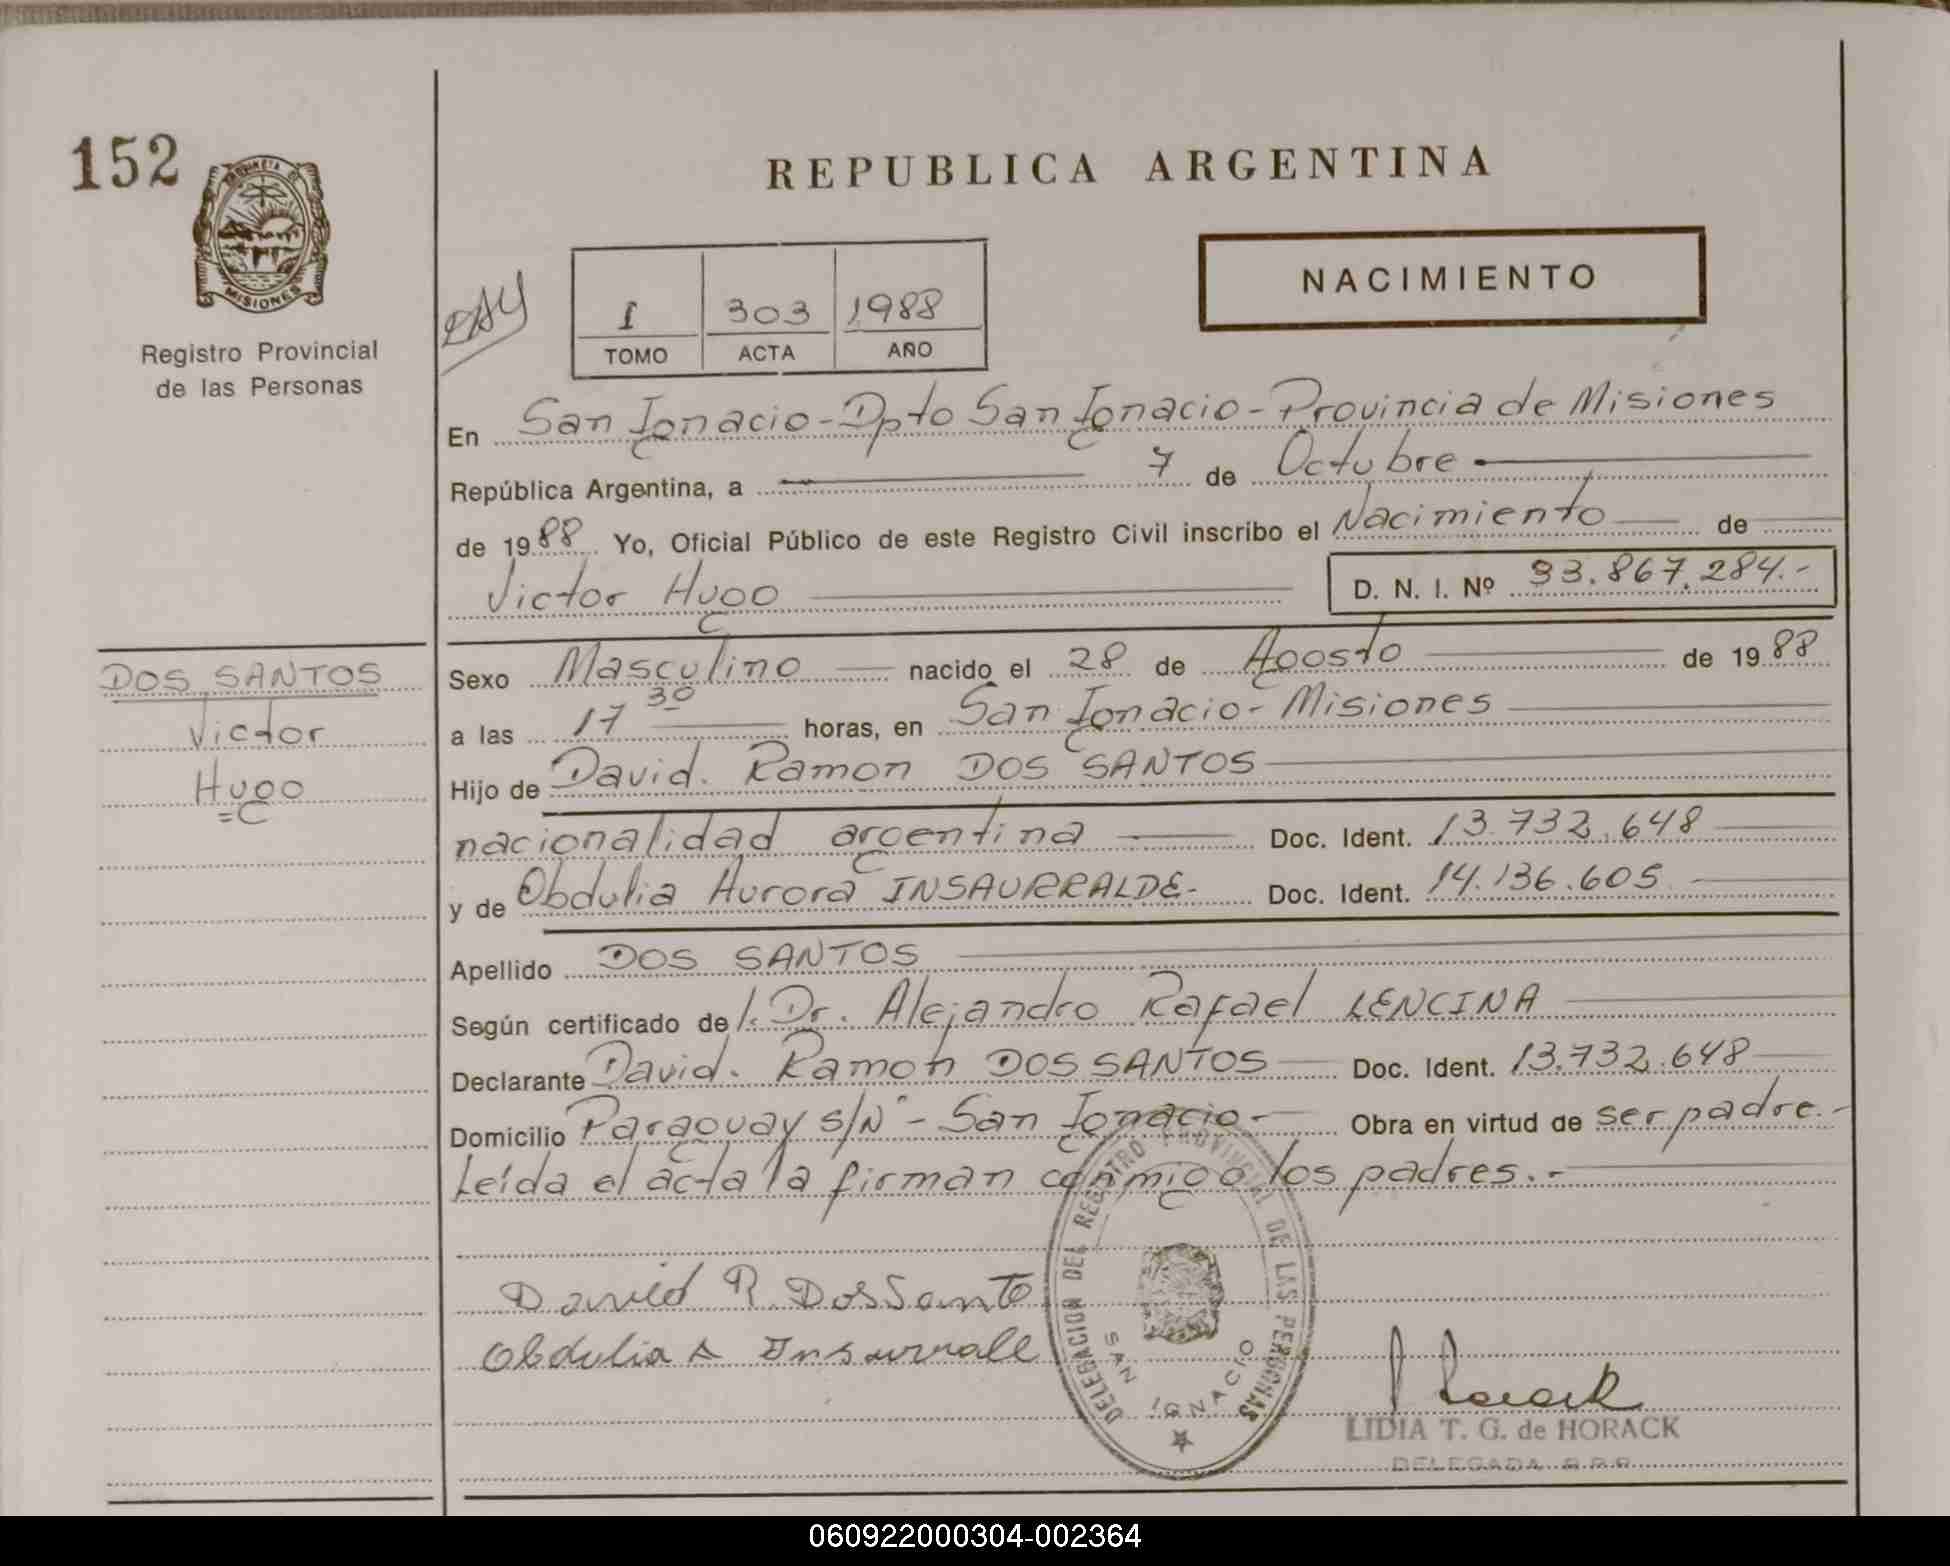 152
PROVINCIA DE
MISIONES
Registro Provincial
de las Personas
DOS SANTOS
Victor
Hugo
REPUBLICA ARGENTINA
NACIMIENTO
I 303 1988
TOMO ACTA AÑO
En San Ignacio - Dpto San Ignacio - Provincia de Misiones
República Argentina, a 7 de Octubre
de 1988 Yo, Oficial Público de este Registro Civil inscribo el Nacimiento de
Victor Hugo D. N. I. Nº 33.867.284.-
Sexo Masculino nacido el 28 de Agosto de 1988
a las 17 30 horas, en San Ignacio - Misiones
Hijo de David. Ramon DOS SANTOS
nacionalidad argentina Doc. Ident. 13.732.648
y de Obdulia Aurora INSAURRALDE- Doc. Ident. 14.136.605
Apellido DOS SANTOS
Según certificado de l. Dr. Alejandro Rafael LENCINA
Declarante David. Ramon DOS SANTOS Doc. Ident. 13.732.648
Domicilio Paraguay s/Nº - San Ignacio - Obra en virtud de ser padre.-
Leída el acta la firman conmigo los padres.-
David R. DosSanto
Obdulia A Insurrale
DELEGACION DEL REGISTRO PROVINCIAL DE LAS PERSONAS
SAN IGNACIO
Horack
LIDIA T. G. de HORACK
DELEGADA R.P.P.
060922000304-002364